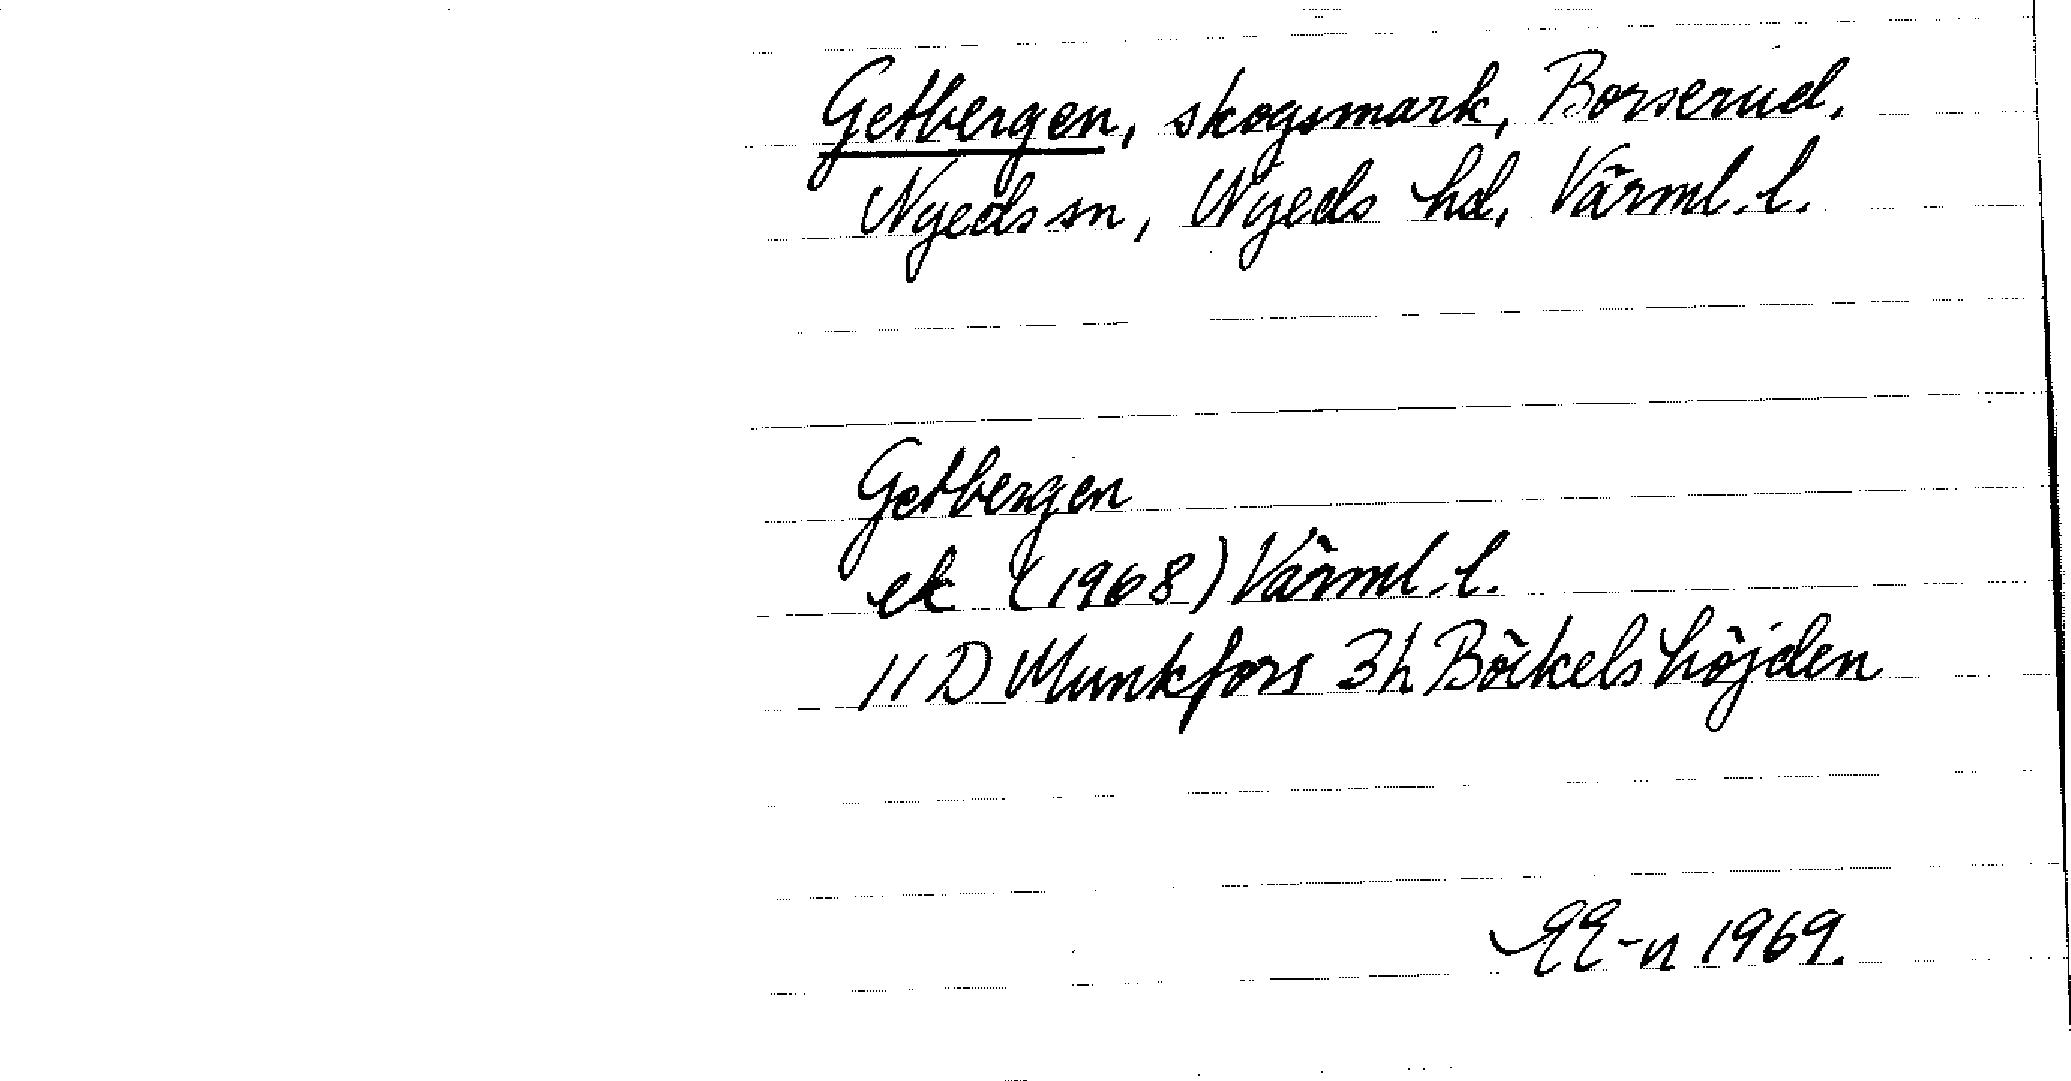 Getbergen, skogsmark, Borserud,
Nyeds sn, Nyeds hd, Värml. l.
Getbergen
ek (1968) Värml. l.
11 D Munkfors 3h Böckelshöjden
EE-n 1969.